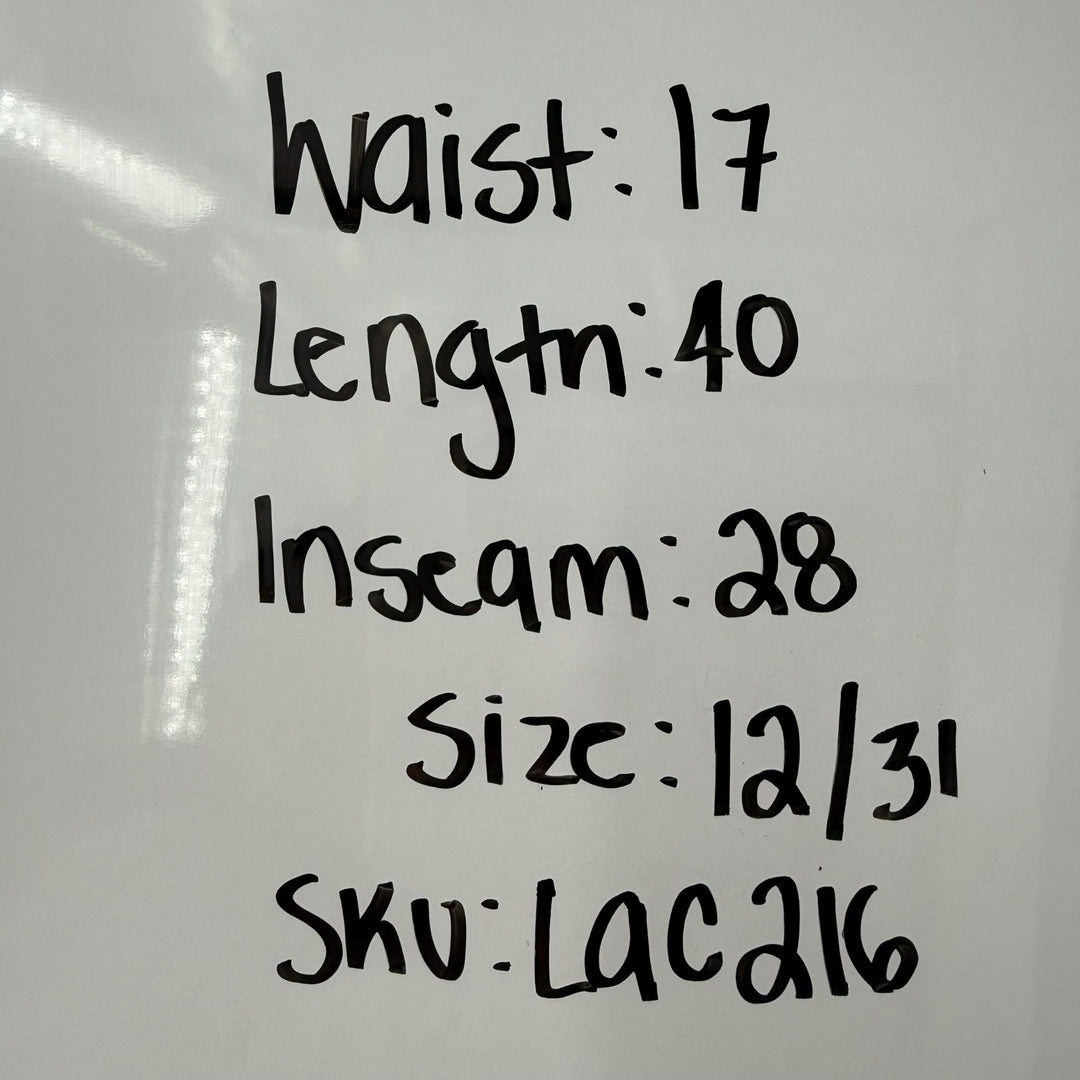 Waist: 17
Length: 40
Inseam: 28
Size: 12/31
SKU: Lac216